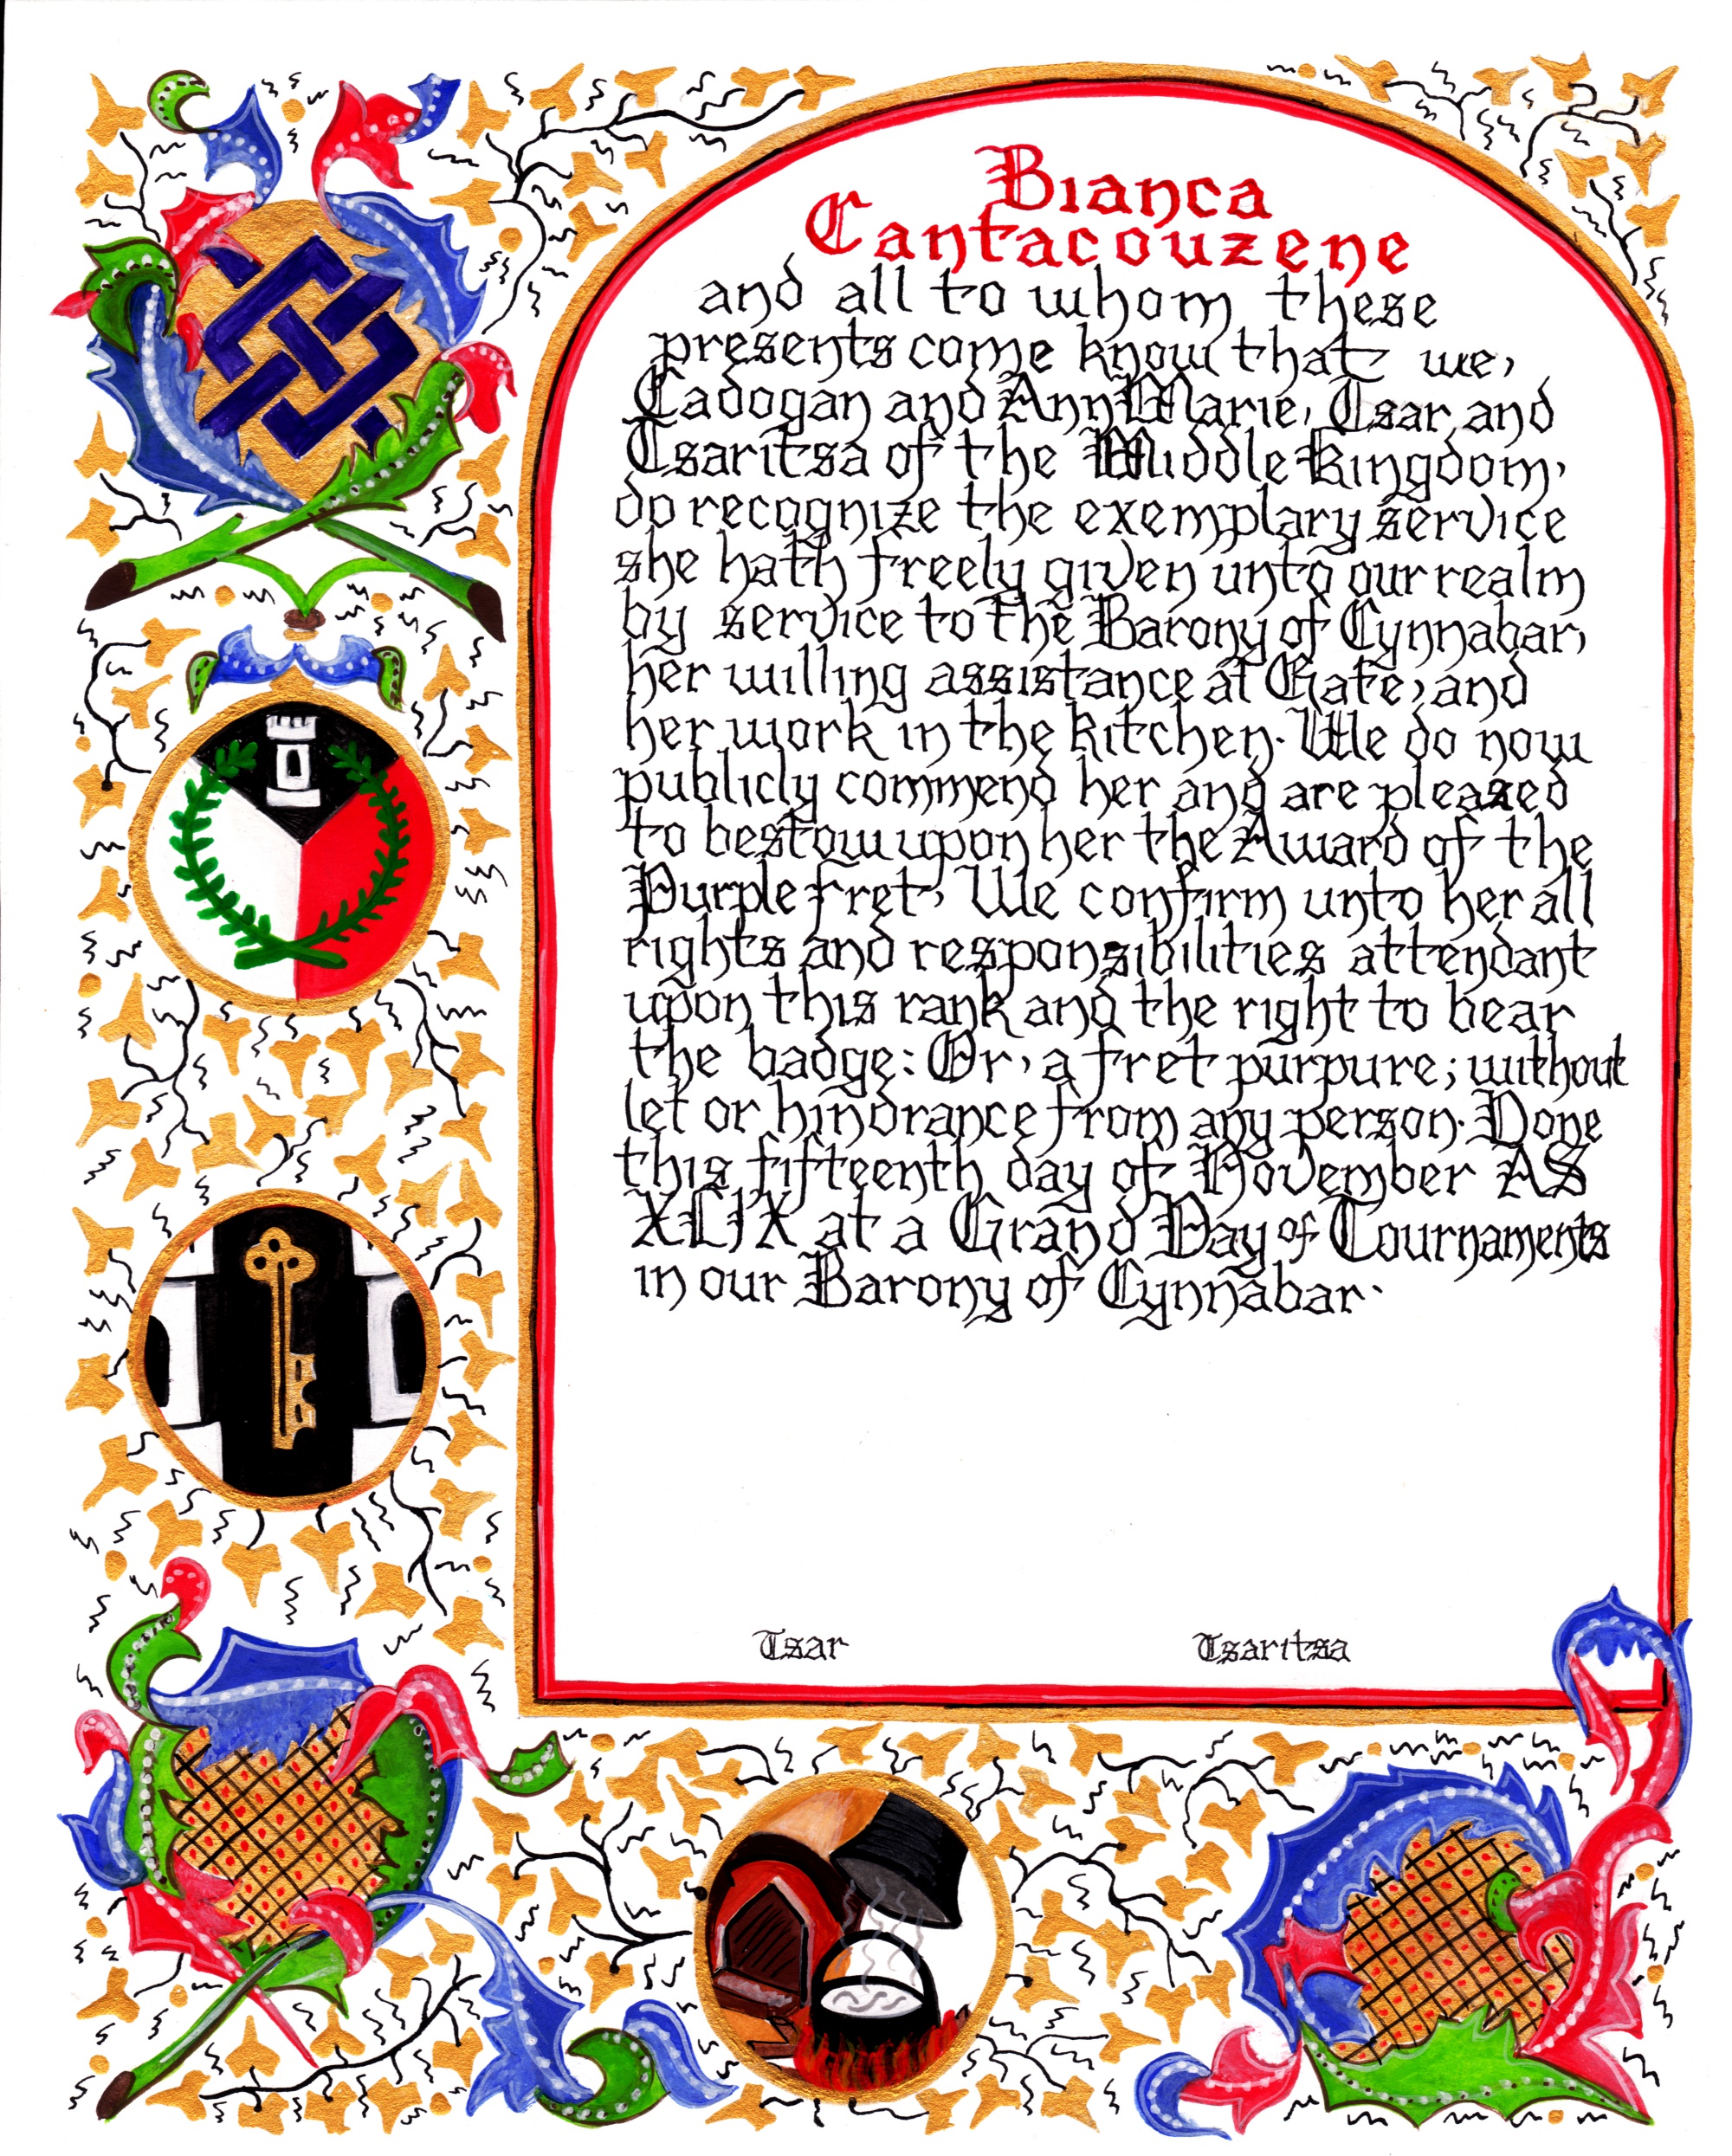 Bianca
Cantacouzene
and all to whom these
presents come know that we,
Cadogan and AnnMarie, Tsar and
Tsaritsa of the Middle Kingdom,
do recognize the exemplary service
she hath freely given unto our realm
by service to the Barony of Cynnabar,
her willing assistance at Gate, and
her work in the kitchen. We do now
publicly commend her and are pleased
to bestow upon her the Award of the
Purple Fret, We confirm unto her all
rights and responsibilities attendant
upon this rank and the right to bear
the badge: Or, a fret purpure; without
let or hindrance from any person. Done
this fifteenth day of November AS
XLIX at a Grand Day of Tournaments
in our Barony of Cynnabar.
Tsar Tsaritsa